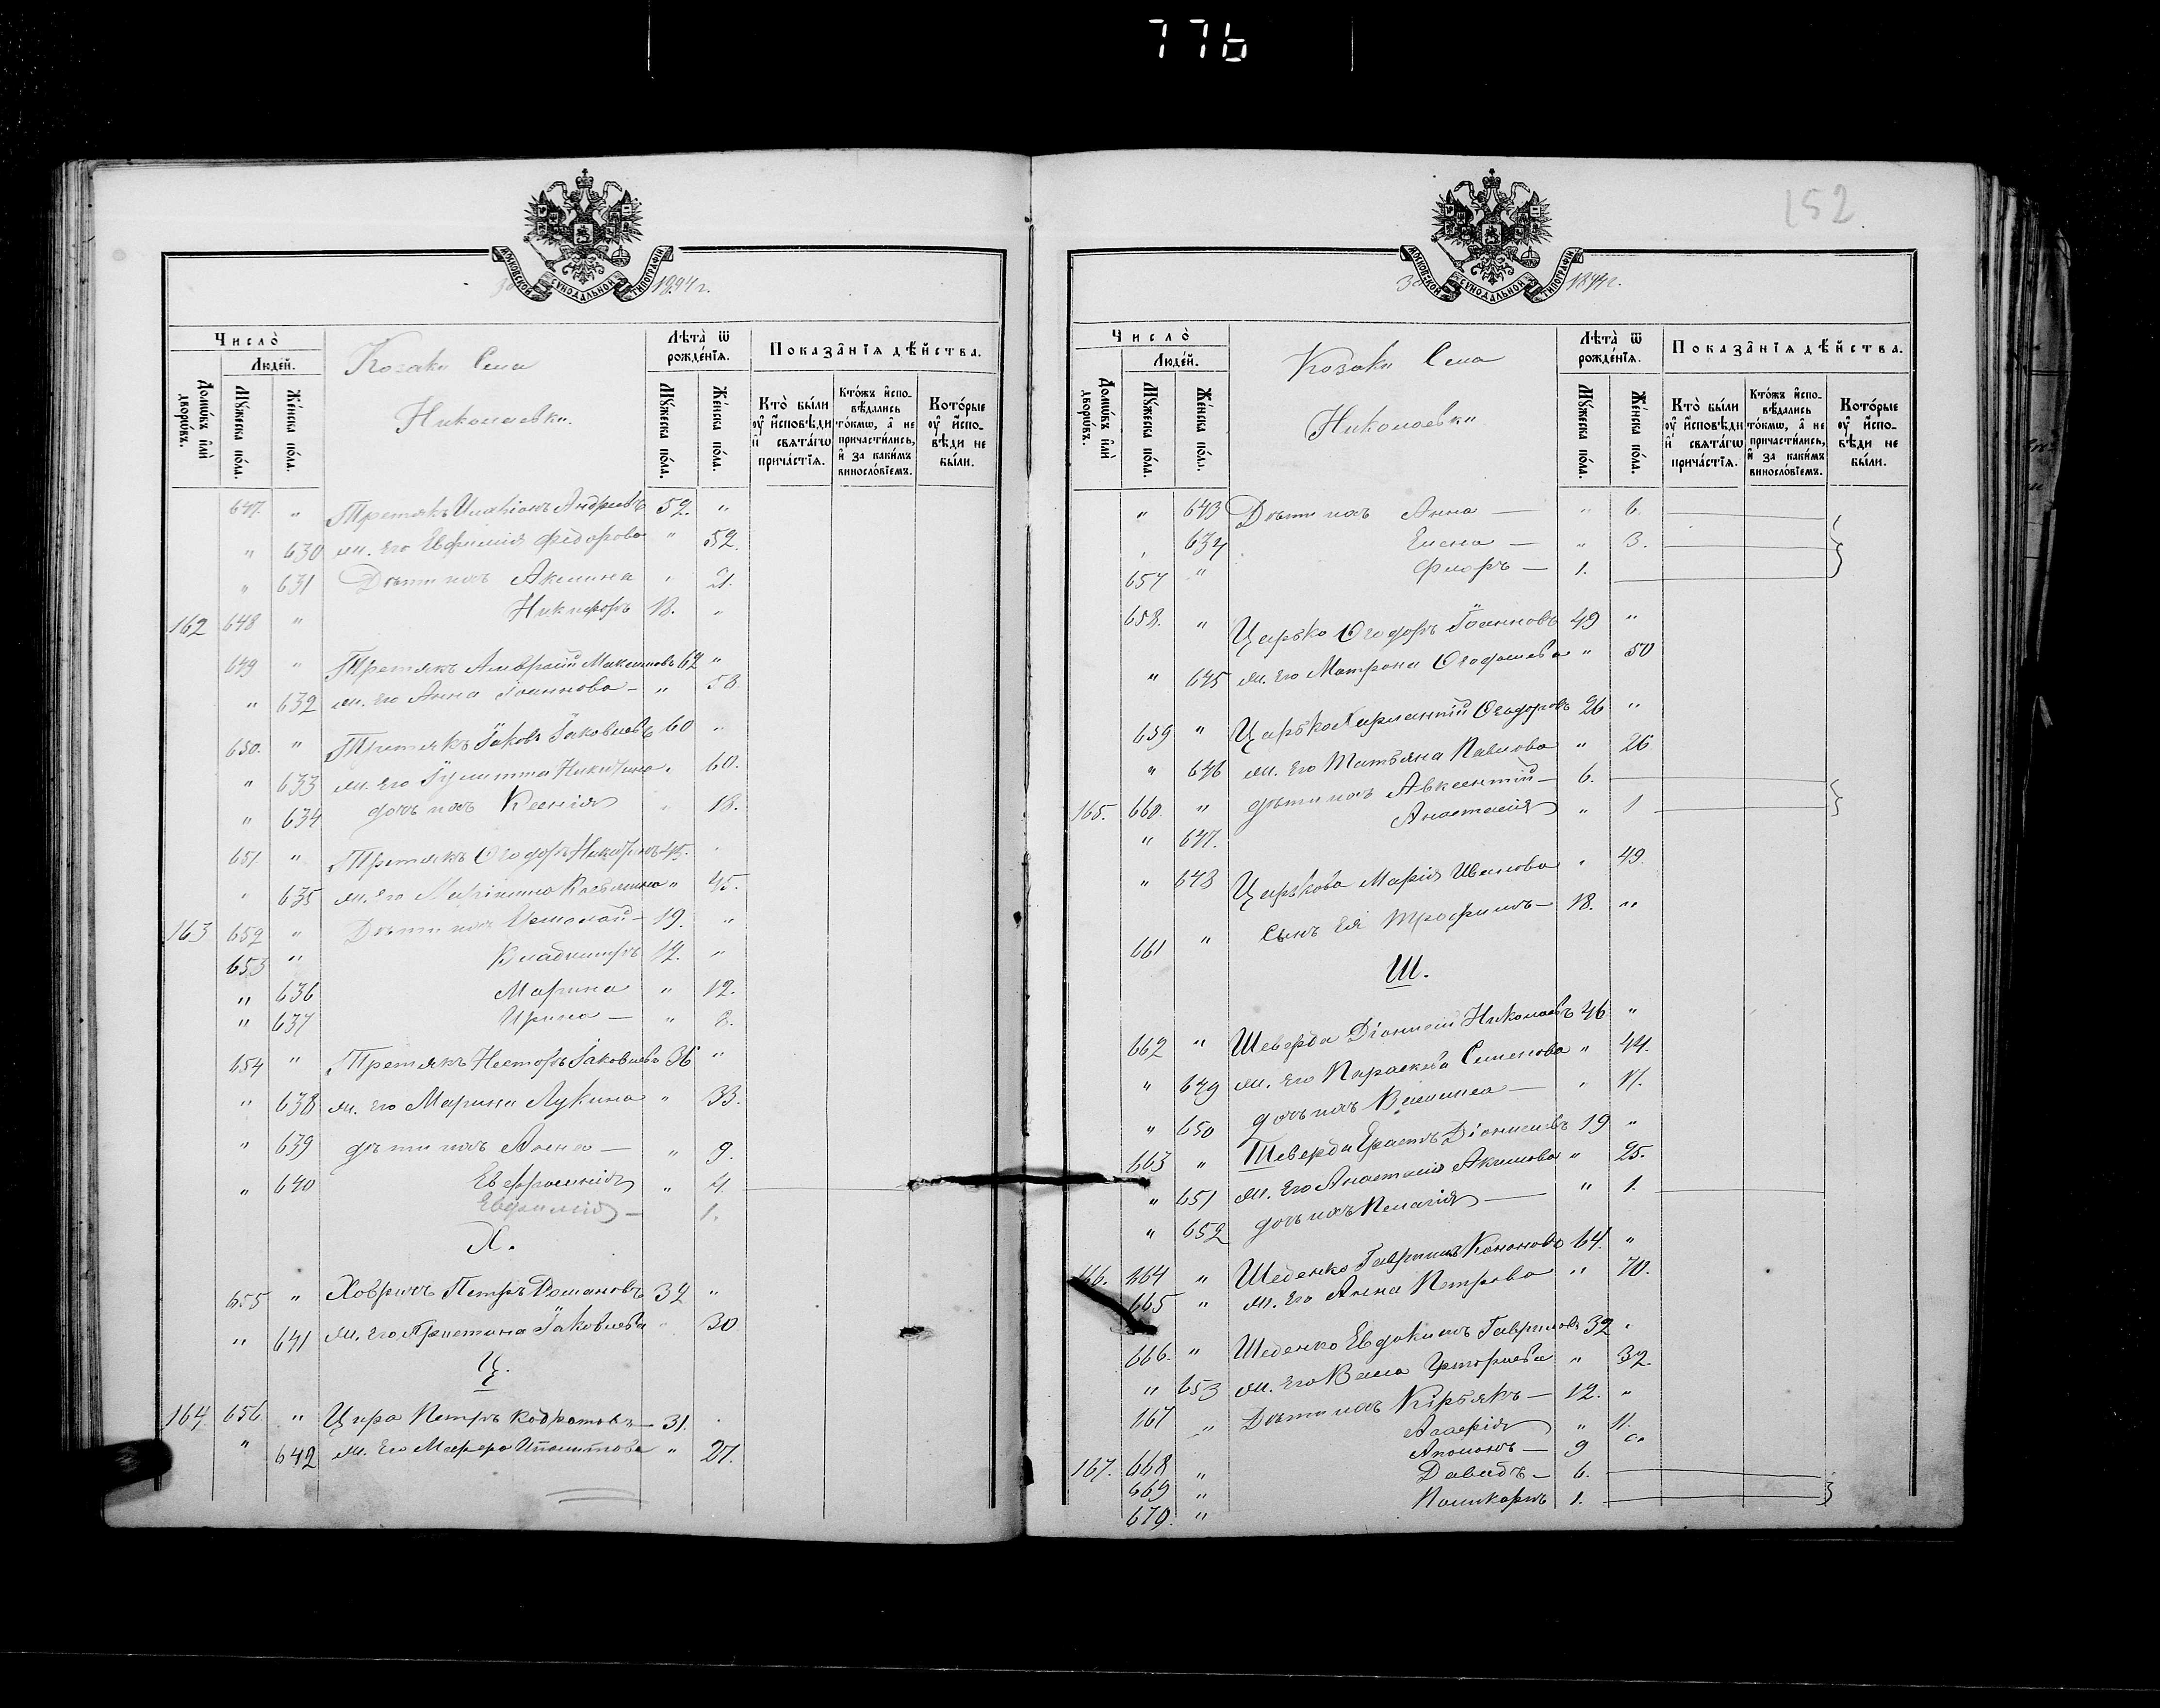 776
152
МОСКОВСКОЙ СѴНОДАЛЬНОЙ ТИПОГРАФІИ
За 1894 г.
Число̀
Людей.
Домѡвъ или дворѡвъ.
Мужеска пола.
Женска пола.
Козаки Села
Николаевки.
Лѣта̀ ѿ рожденїѧ.
Мужеска пола.
Женска пола.
Показанїѧ дѣйства.
Кто̀ были оу исповѣди и свѧтагѡ причастїѧ.
Ктожъ исповѣдались токмѡ, а не причастились, и за какимъ винословїемъ.
Которые оу исповѣди не были.
647. " Третякъ Иларіонъ Андреевъ 52. "
" 630 ж. его Евфимія Федорова " 52.
" 631 Дѣти ихъ Акилина " 21.
162 648 " Никифоръ 18. "
649 " Третякъ Амвросій Максимовъ 62 "
" 632 ж. его Анна Іоаннова — " 58
650. " Третякъ Іаковъ Іаковлевъ 60 "
" 633 ж. его Іулитта Никитина " 60.
" 634 дочь ихъ Ксенія " 18.
651 " Третякъ Ѳеодоръ Никитинъ 45. "
" 635 ж. его " 45.
163 652 " Дѣти ихъ — 19. "
653 " Владимиръ 12. "
" 636 Марина " 12.
" 637 Ирина — " 2.
654 " Третякъ Несторъ Іаковлевъ 36 "
" 638 ж. его Марина Лукина " 33.
" 639 дѣти ихъ Анна — " 9.
" 640 Евфросинія " 4.
Евфимія — 1.
Х.
655 " Петръ Романовъ 32 "
" 641 ж. его Христина Іаковлева " 30
Ц.
164 656. " Цира Петръ — 31.
" 642 ж. его Марфа Ипполитова " 27.
За 1894 г.
Число̀
Людей.
Домѡвъ или дворѡвъ.
Мужеска пола.
Женска пола.
Козаки Села
Николаевки
Лѣта̀ ѿ рожденїѧ.
Мужеска пола.
Женска пола.
Показанїѧ дѣйства.
Кто̀ были оу исповѣди и свѧтагѡ причастїѧ.
Ктожъ исповѣдались токмѡ, а не причастились, и за какимъ винословїемъ.
Которые оу исповѣди не были.
" 643 Дѣти ихъ Анна — " 6.
" 634 Елена — " 3.
657 " Флоръ — 1.
658. " Царько Ѳеодоръ Іоанновъ 49 "
" 645 ж. его Матрона " 50
659 " Царько Харлампій Ѳеодоровъ 26 "
" 646 ж. его Татьяна Павлова " 26.
165. 660. " дѣти ихъ Авксентій — 6.
" 647. Анастасія " 1
" 648 Царькова Марія Иванова " 49.
661 " Сынъ ея Трофимъ — 18. "
Ш.
662 " Шеверда Діонисій Николаевъ 46 "
" 649 ж. его Параскева Семенова " 44.
" 650 дочь ихъ Василиса — " 17.
663 " Шеверда Ерастъ Діонисіевъ 19 "
" 651 ж. его Анастасія Акимова " 25.
" 652 дочь ихъ Пелагія — " 1.
166. 664 " Шеденко Гавриилъ Кононовъ 64. "
665 " ж. его Анна Петрова " 70.
666. " Шеденко Евдокимъ Гавриловъ 32 "
" 653 ж. его Васса Григорьева " 32.
167 " Дѣти ихъ Кирьякъ — 12. "
" 11.
Аполонъ — 9 "
167. 668 " Давидъ — 6.
669 " Поликарпъ 1.
670. "